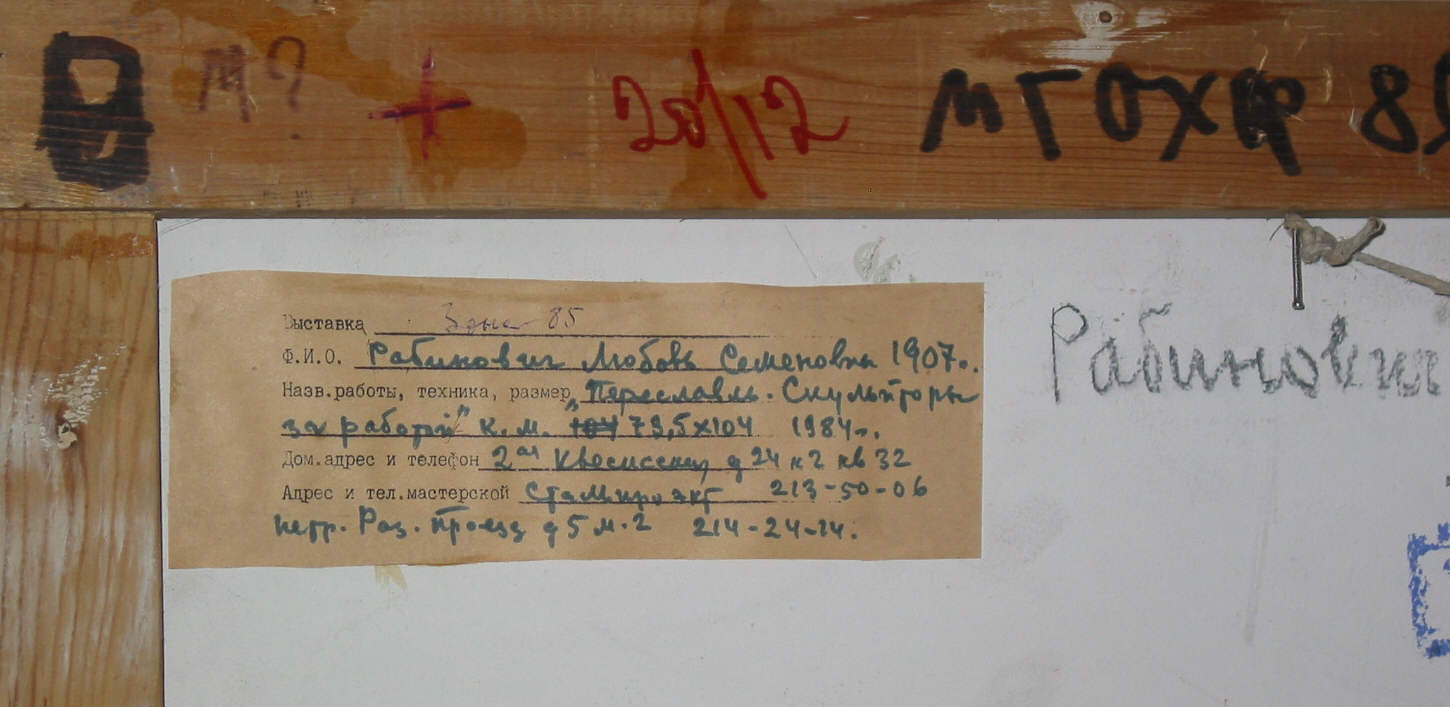 М? + 20/12 МГОХР 8
Выставка Зона 85
Ф.И.О. Рабинович Любовь Семеновна 1907г.
Назв.работы, техника, размер „Переславль. Скульпторы
за работой" к.м. 79,5х104 1984г.
Дом.адрес и телефон 2ая Квесисская д 24 к 2 кв 32
Адрес и тел.мастерской 213-50-06
петр. Раз. Проезд д 5 м.2 214-24-14.
Рабинович